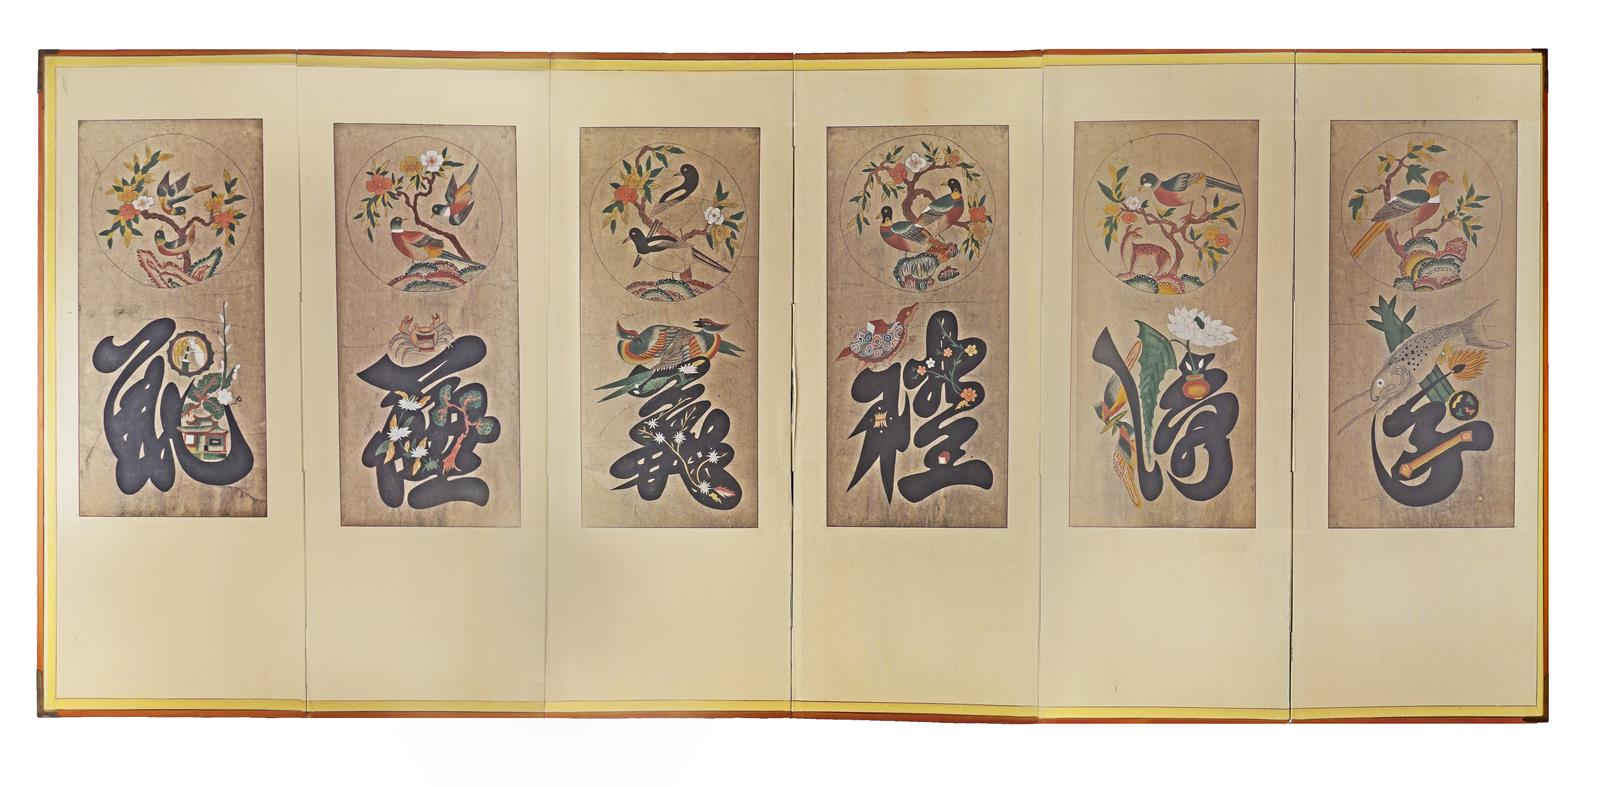 孝
悌
禮
義
廉
恥